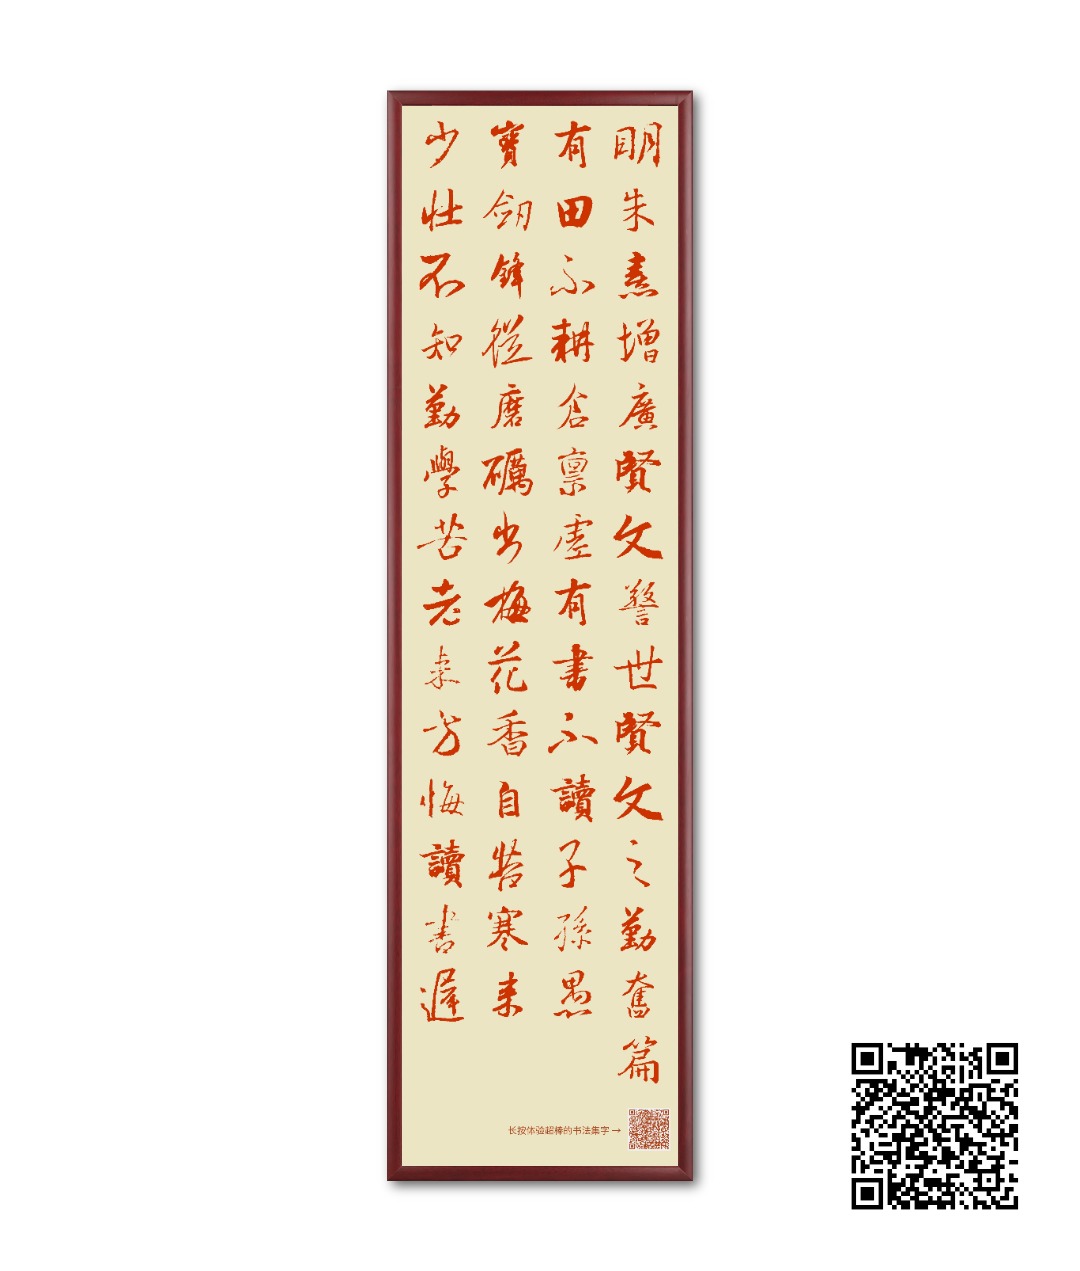 明朱熹增廣賢文警世賢文之勤奮篇
有田不耕倉禀虛有書不讀子孫愚
寶劒鋒從磨礪出梅花香自苦寒来
少壯不知勤學苦老来方悔讀書遲
长按体验超棒的书法集字→